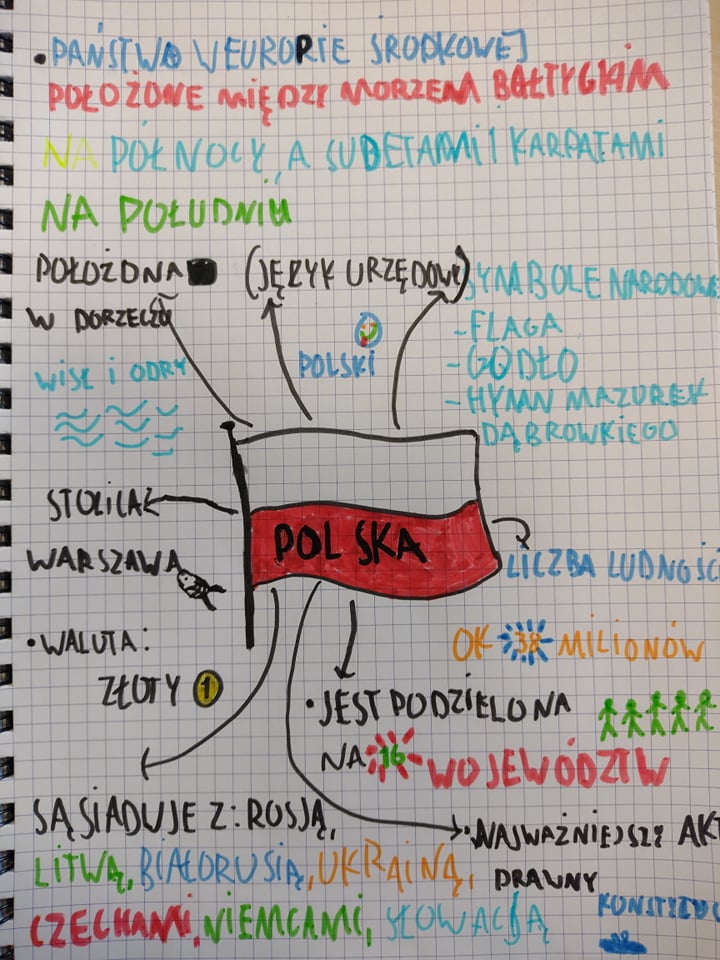 • PAŃSTWO W EUROPIE ŚRODKOWEJ
POŁOŻONE MIĘDZY MORZEM BAŁTYCKIM
NA PÓŁNOCY, A SUDETAMI I KARPATAMI
NA POŁUDNIU
POŁOŻONA
W DORZECZU
WISŁ I ODRY
(JĘZYK URZĘDOWY)
POLSKI
SYMBOLE NARODOWE
- FLAGA
- GODŁO
- HYMN MAZUREK
DĄBROWKIEGO
STOLICA
WARSZAWA
POLSKA
LICZBA LUDNOŚCI
OK 38 MILIONÓW
• WALUTA:
ZŁOTY 1
• JEST PODZIELONA
NA 16 WOJEWÓDZTW
SĄSIADUJE Z: ROSJĄ,
LITWĄ, BIAŁORUSIĄ, UKRAINĄ,
CZECHAMI, NIEMCAMI, SŁOWACJĄ
• NAJWAŻNIEJSZY AKT
PRAWNY